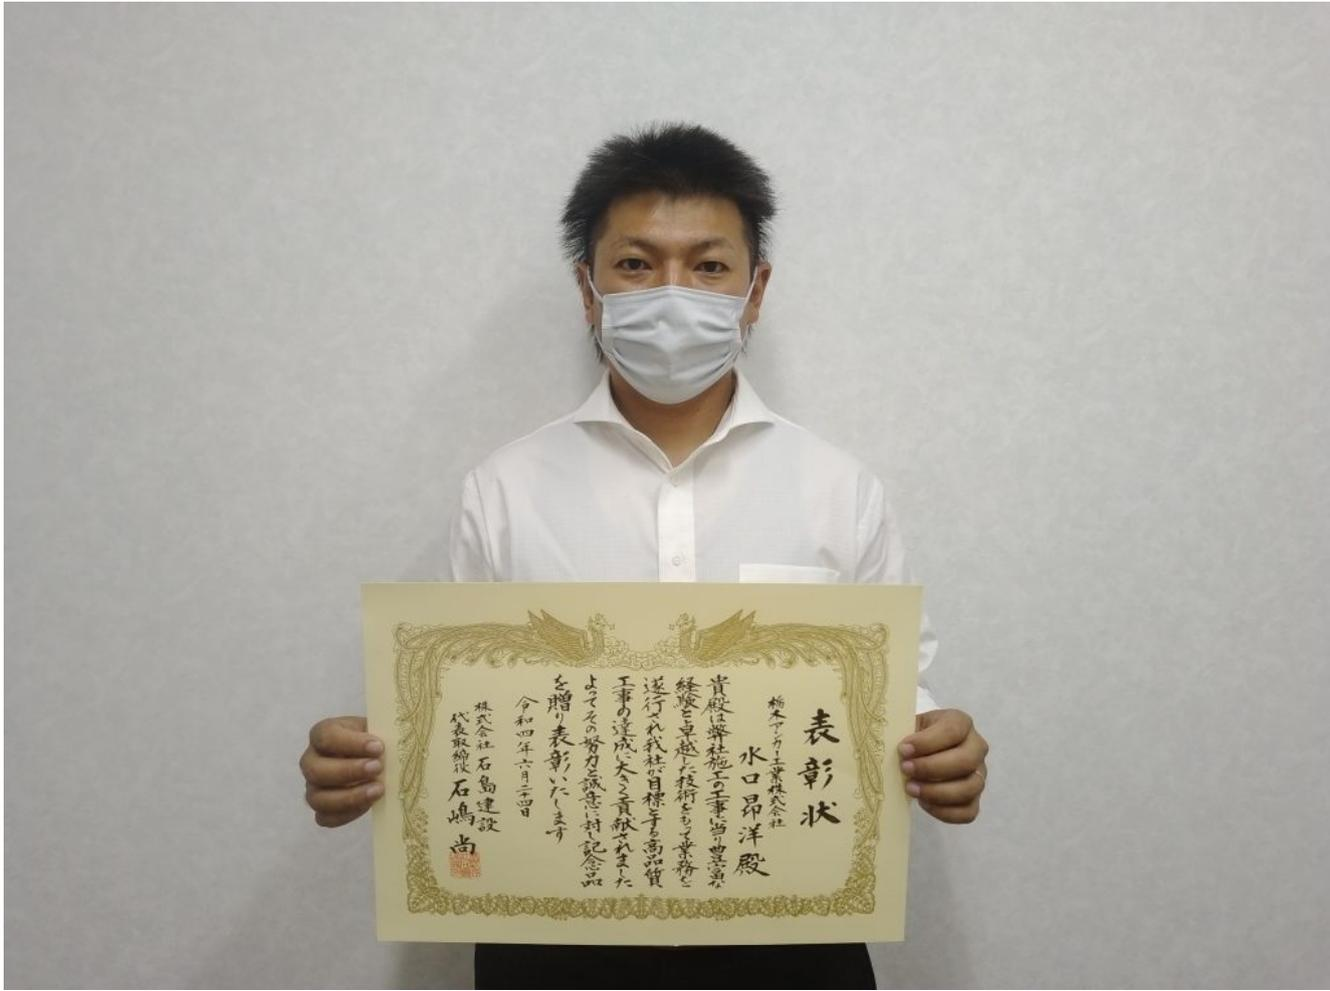 表彰状
栃木アンカー工業株式会社
水口昂洋殿
貴殿は弊社施工の工事に当り豊富な
経験と卓越した技術をもって業務を
遂行され我社が目標とする高品質
工事の達成に大きく貢献されました
よってその努力と誠意に対し記念品
を贈り表彰いたします
令和四年六月二十四日
株式会社石島建設
代表取締役 石嶋尚